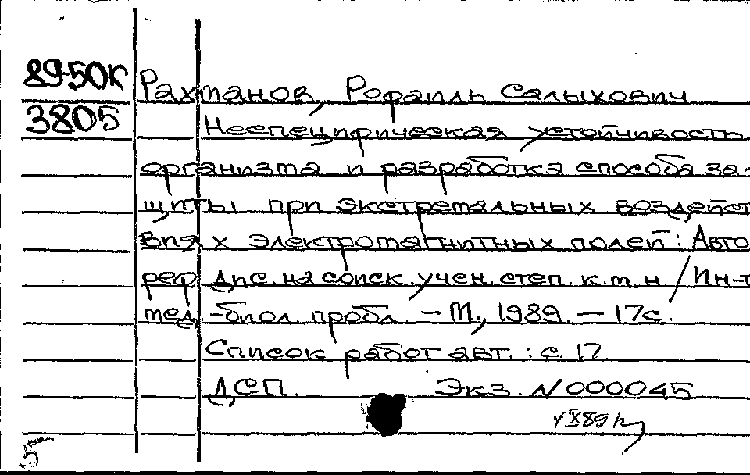 89-50К Рахманов, Рофаиль Салыхович
3805 Неспецифическая устойчивость
организма и разработка способа за-
щиты при экстремальных воздейст
виях электромагнитных полей: Авто
реф. дис. на соиск. учен. степ. к.м.н / Ин-т
мед.-биол. пробл. – М., 1989. – 17с.
Список работ авт.: с. 17
ДСП. Экз. N 000045